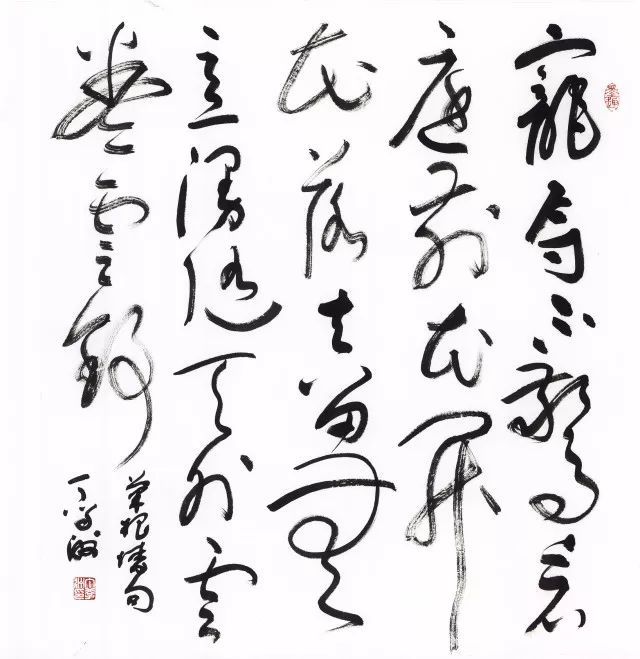 寵辱不驚看
庭前花開
花落去留無
意漫隨天外雲
卷雲舒
菜根譚句
丁